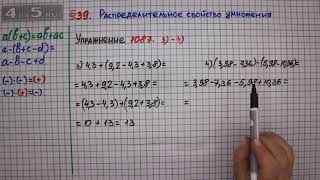 §39. Распределительное свойство умножения
a(b+c)=ab+ac
a-(b+c-d)=
a-b-c+d
(-)·(-)=(+)
(-)·(+)=(-)
Упражнение 1087. 3)-4)
3) 4,3+(9,2-4,3+3,8)=
=4,3+9,2-4,3+3,8=
=(4,3-4,3)+(9,2+3,8)=
=0+13=13
4)(3,98-7,36)-(5,98-10,36)=
=3,98-7,36-5,98+10,36=
=